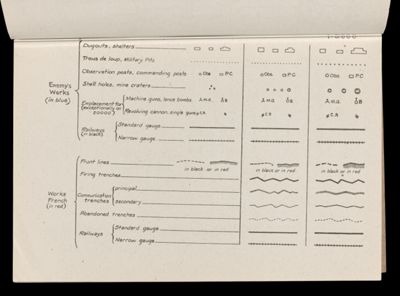 Dugouts, shelters
Trous de loup, Military Pits
Observation posts, commanding posts Obs P.C. Obs P.C. Obs P.C.
Shell holes, mine craters
Enemy's Works (in blue)
Emplacement for (exceptionally on 20000)
Machine guns, lance bombs
Revolving cannon, single guns C.R. C.R. C.R.
Railways (in black)
Standard gauge
Narrow gauge
Front lines
in black or in red in black or in red in black or in red
Firing trenches
Works French (in red)
Communication trenches
principal
secondary
Abandoned trenches
Railways
Standard gauge
Narrow gauge